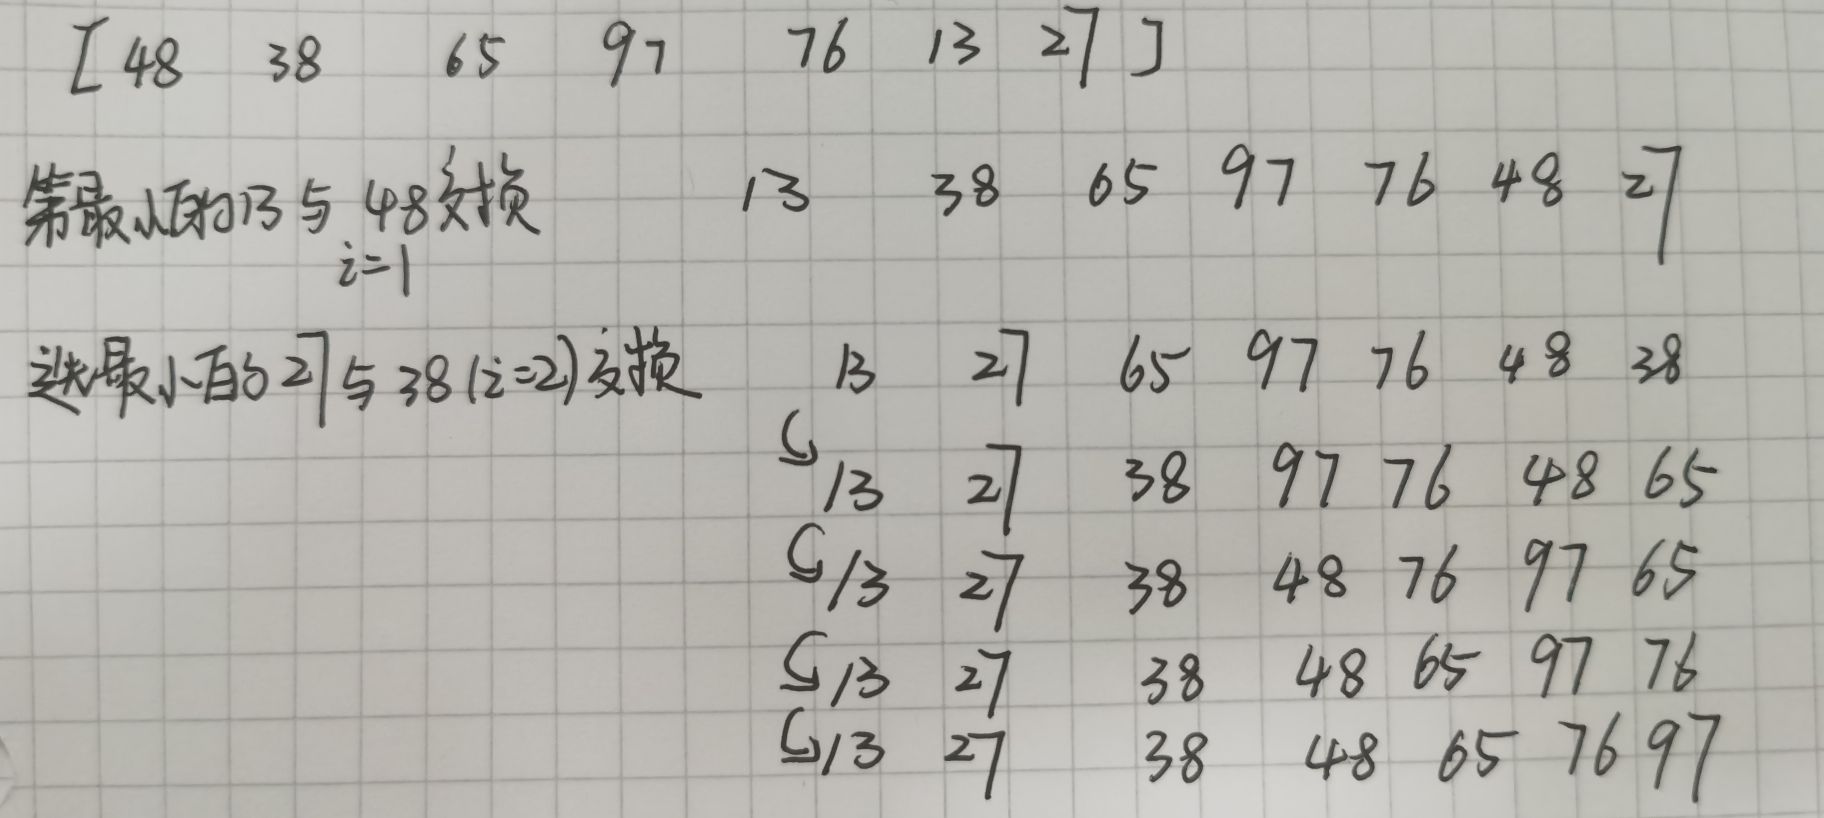 [ 48 38 65 97 76 13 27 ]
第最小的13与48交换 13 38 65 97 76 48 27
i=1
选最小的27与38(i=2)交换 13 27 65 97 76 48 38
13 27 38 97 76 48 65
13 27 38 48 76 97 65
13 27 38 48 65 97 76
13 27 38 48 65 76 97